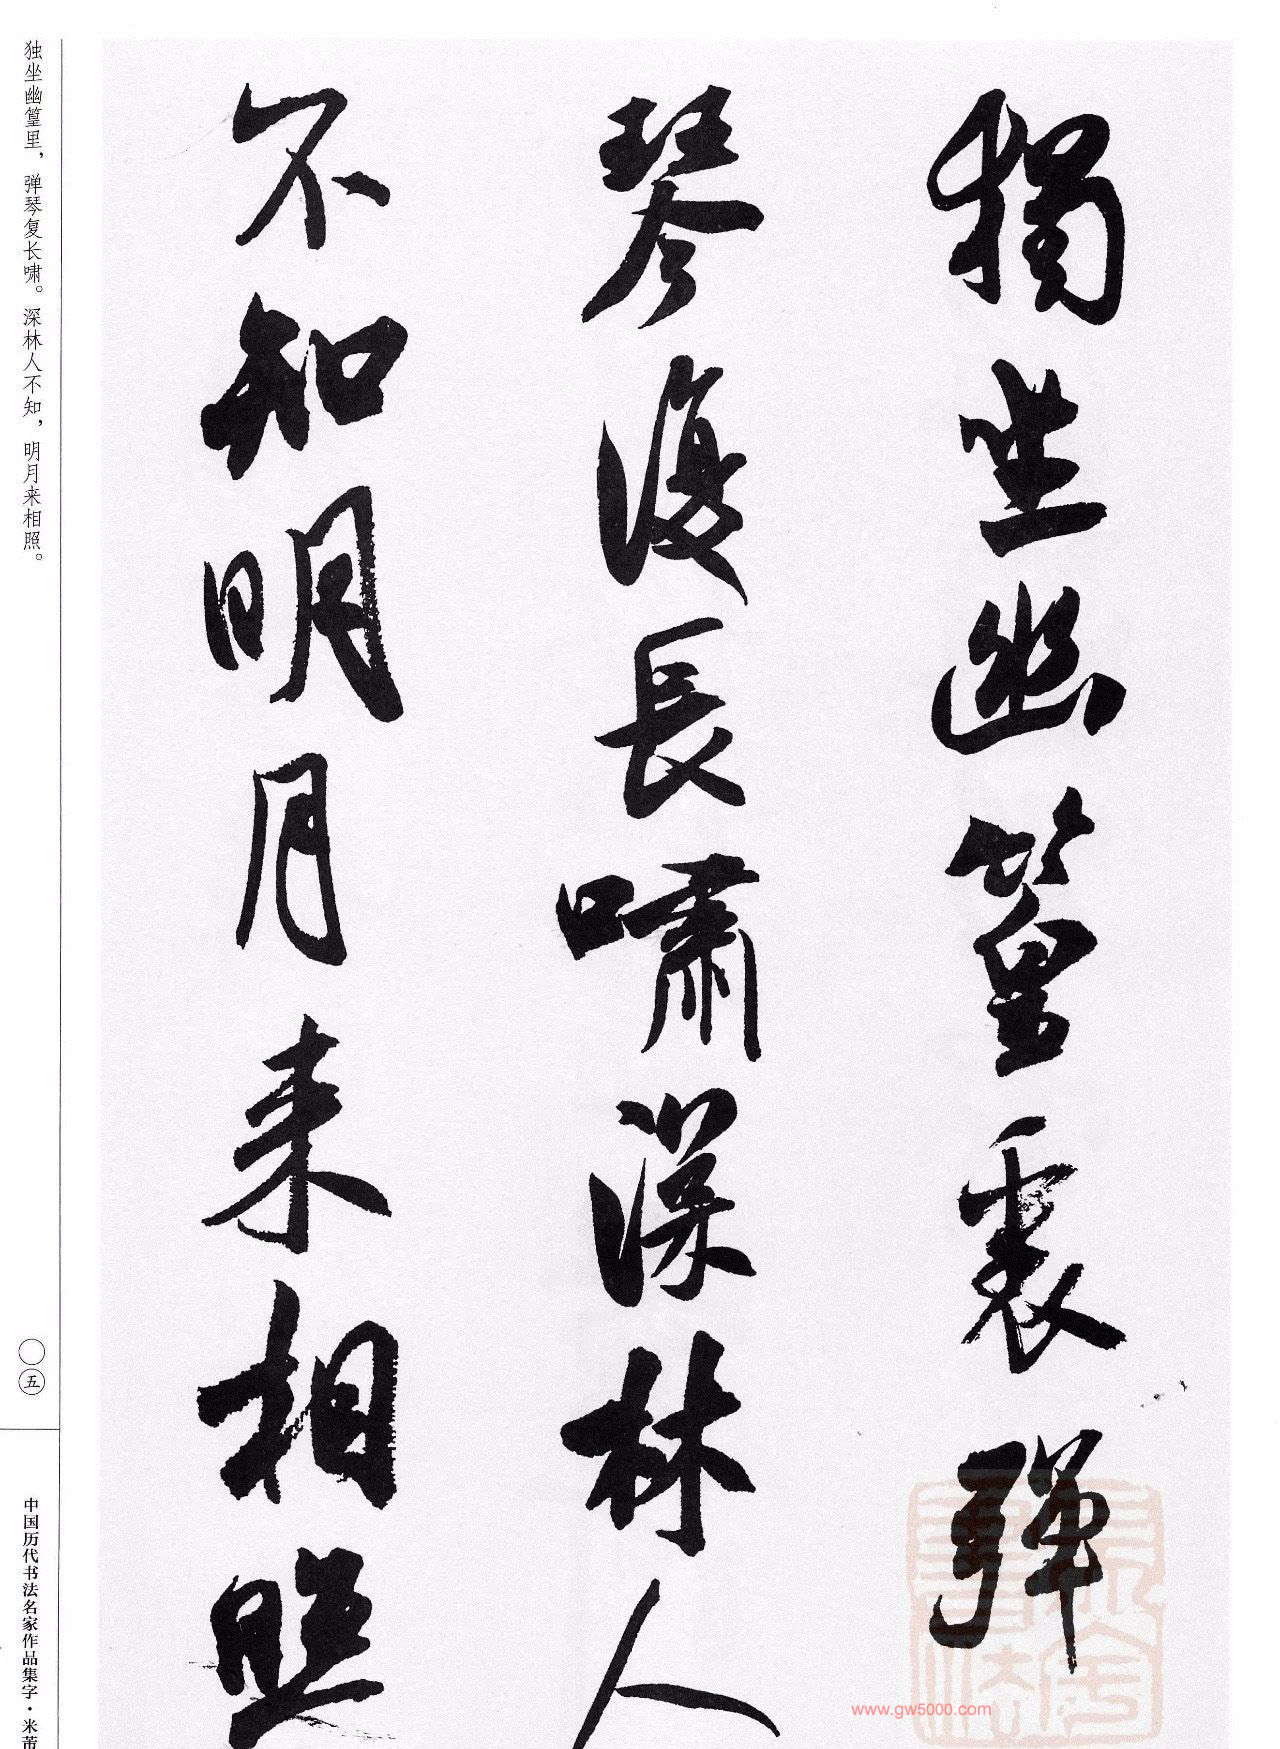 獨坐幽篁裏彈
琴復長嘯深林人
不知明月来相照
独坐幽篁里，弹琴复长啸。深林人不知，明月来相照。
〇五
中国历代书法名家作品集字·米芾
www.gw5000.com